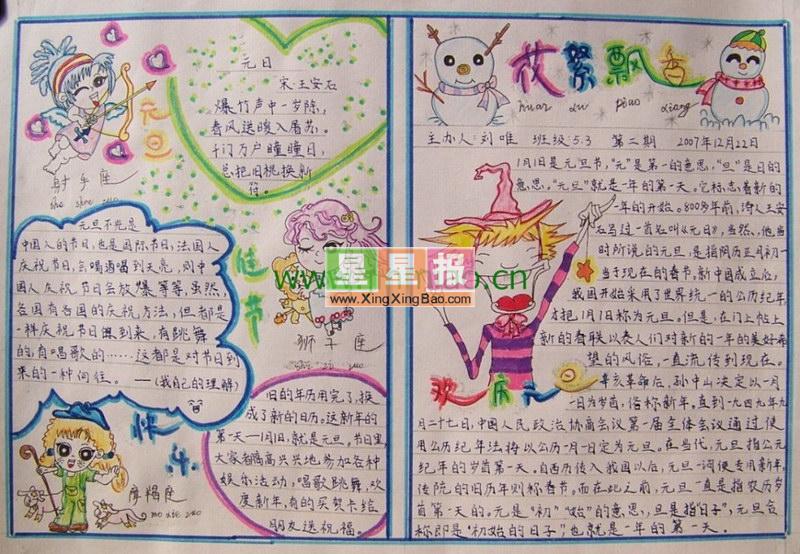 元日
宋:王安石
爆竹声中一岁除,
春风送暖入屠苏。
千门万户瞳瞳日,
总把旧桃换新
符。
元旦
射手座
she shou zuo
元旦不光是
中国人的节日,也是国际节日,法国人
庆祝节日,会喝酒喝到天亮,则中
国人庆祝节日会放爆竹等,虽然,
各国有各国的庆祝方法,但都是
一样庆祝节日到来,有跳舞
的,有唱歌的……这都是对节日到
来的一种向往。——(我自己的理解)
佳节
狮子座
shi zi zuo
快乐
摩羯座
mo xie zuo
旧的年历用完了,换
成了新的日历。这新年的
第一天——1月1日,就是元旦。节日里,
大家都高高兴兴地参加各种
娱乐活动,唱歌跳舞,欢
度新年,有的买贺卡给
朋友送祝福。
花絮飘香
hua xu piao xiang
主办人:刘唯 班级:5.3 第二期 2007年12月22日
1月1日是元旦节,“元”是第一的意思,“旦”是日的
意思。“元旦”就是一年的第一天。它标志着新的
一年的开始。800多年前,诗人王安
石写过一首处叫《元日》,当然,他当
时所说的元旦,是指阴历正月初一
,当于现在的春节,新中国成立后,
我国开始采用了世界统一的公历纪年
才把1月1日称为元旦。但是,在门上帖上
新的春联以表人们对新的一年的美好希
望的风俗,一直流传到现在。
欢庆元旦
辛亥革命后,孙中山决定以一月
一日为岁首,俗称新年。直到一九四九年九
月二十七日,中国人民政治协商会议第一届全体会议通过使
用公历纪年法,将以公历一月一日定为元旦。在当代,元旦指公元
纪年的岁首第一天。自西历传入我国以后,元旦一词便专用新年,
传统的旧历年则称春节。而在此之前,元旦一直是指农历岁
首第一天的。元是“初”“始”的意思,旦是指“日子”,元旦合
称即是“初始的日子”,也就是一年的第一天。
星星报
www.XingXingBao.com